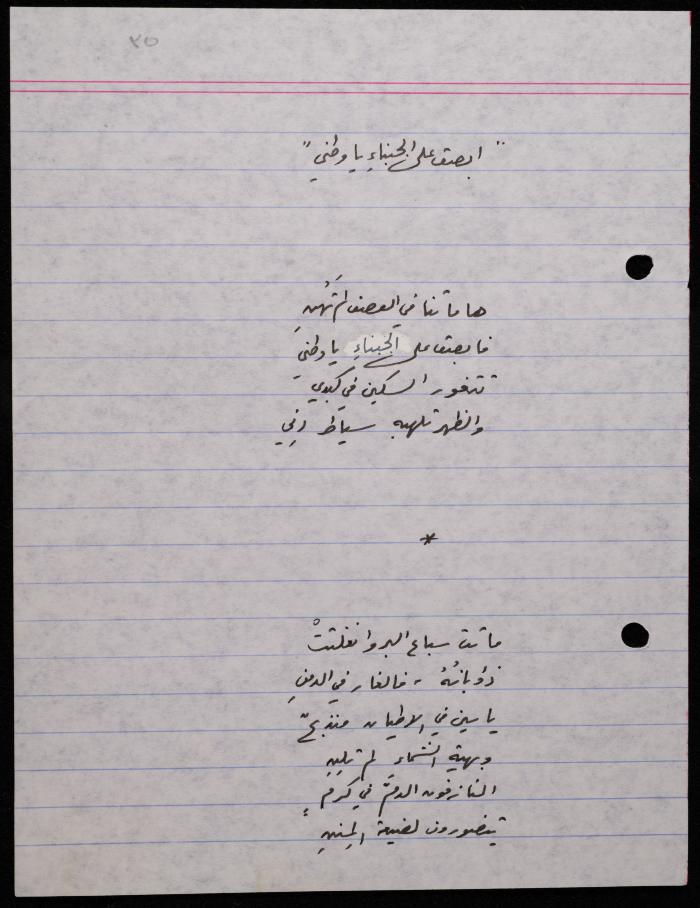 ٣٥
" ابصق على الجبناءِ يا وطني "
هاماتنا في العصف لم تَهُنِ
فابصق على الجبناءِ يا وطني
تتغور السكين في كبدي
والظهر تلهبه سياط
*
ماتت سباع البر وانفلتتْ
ذؤبانُهُ ، فالغار في الدمنِ
ياسين في الاطيان منذبحٌ
وبهية الشماءِ لم تلينِ
النازفون الدمَّ في كرمٍ
يتضورون لضيعة المِننِ